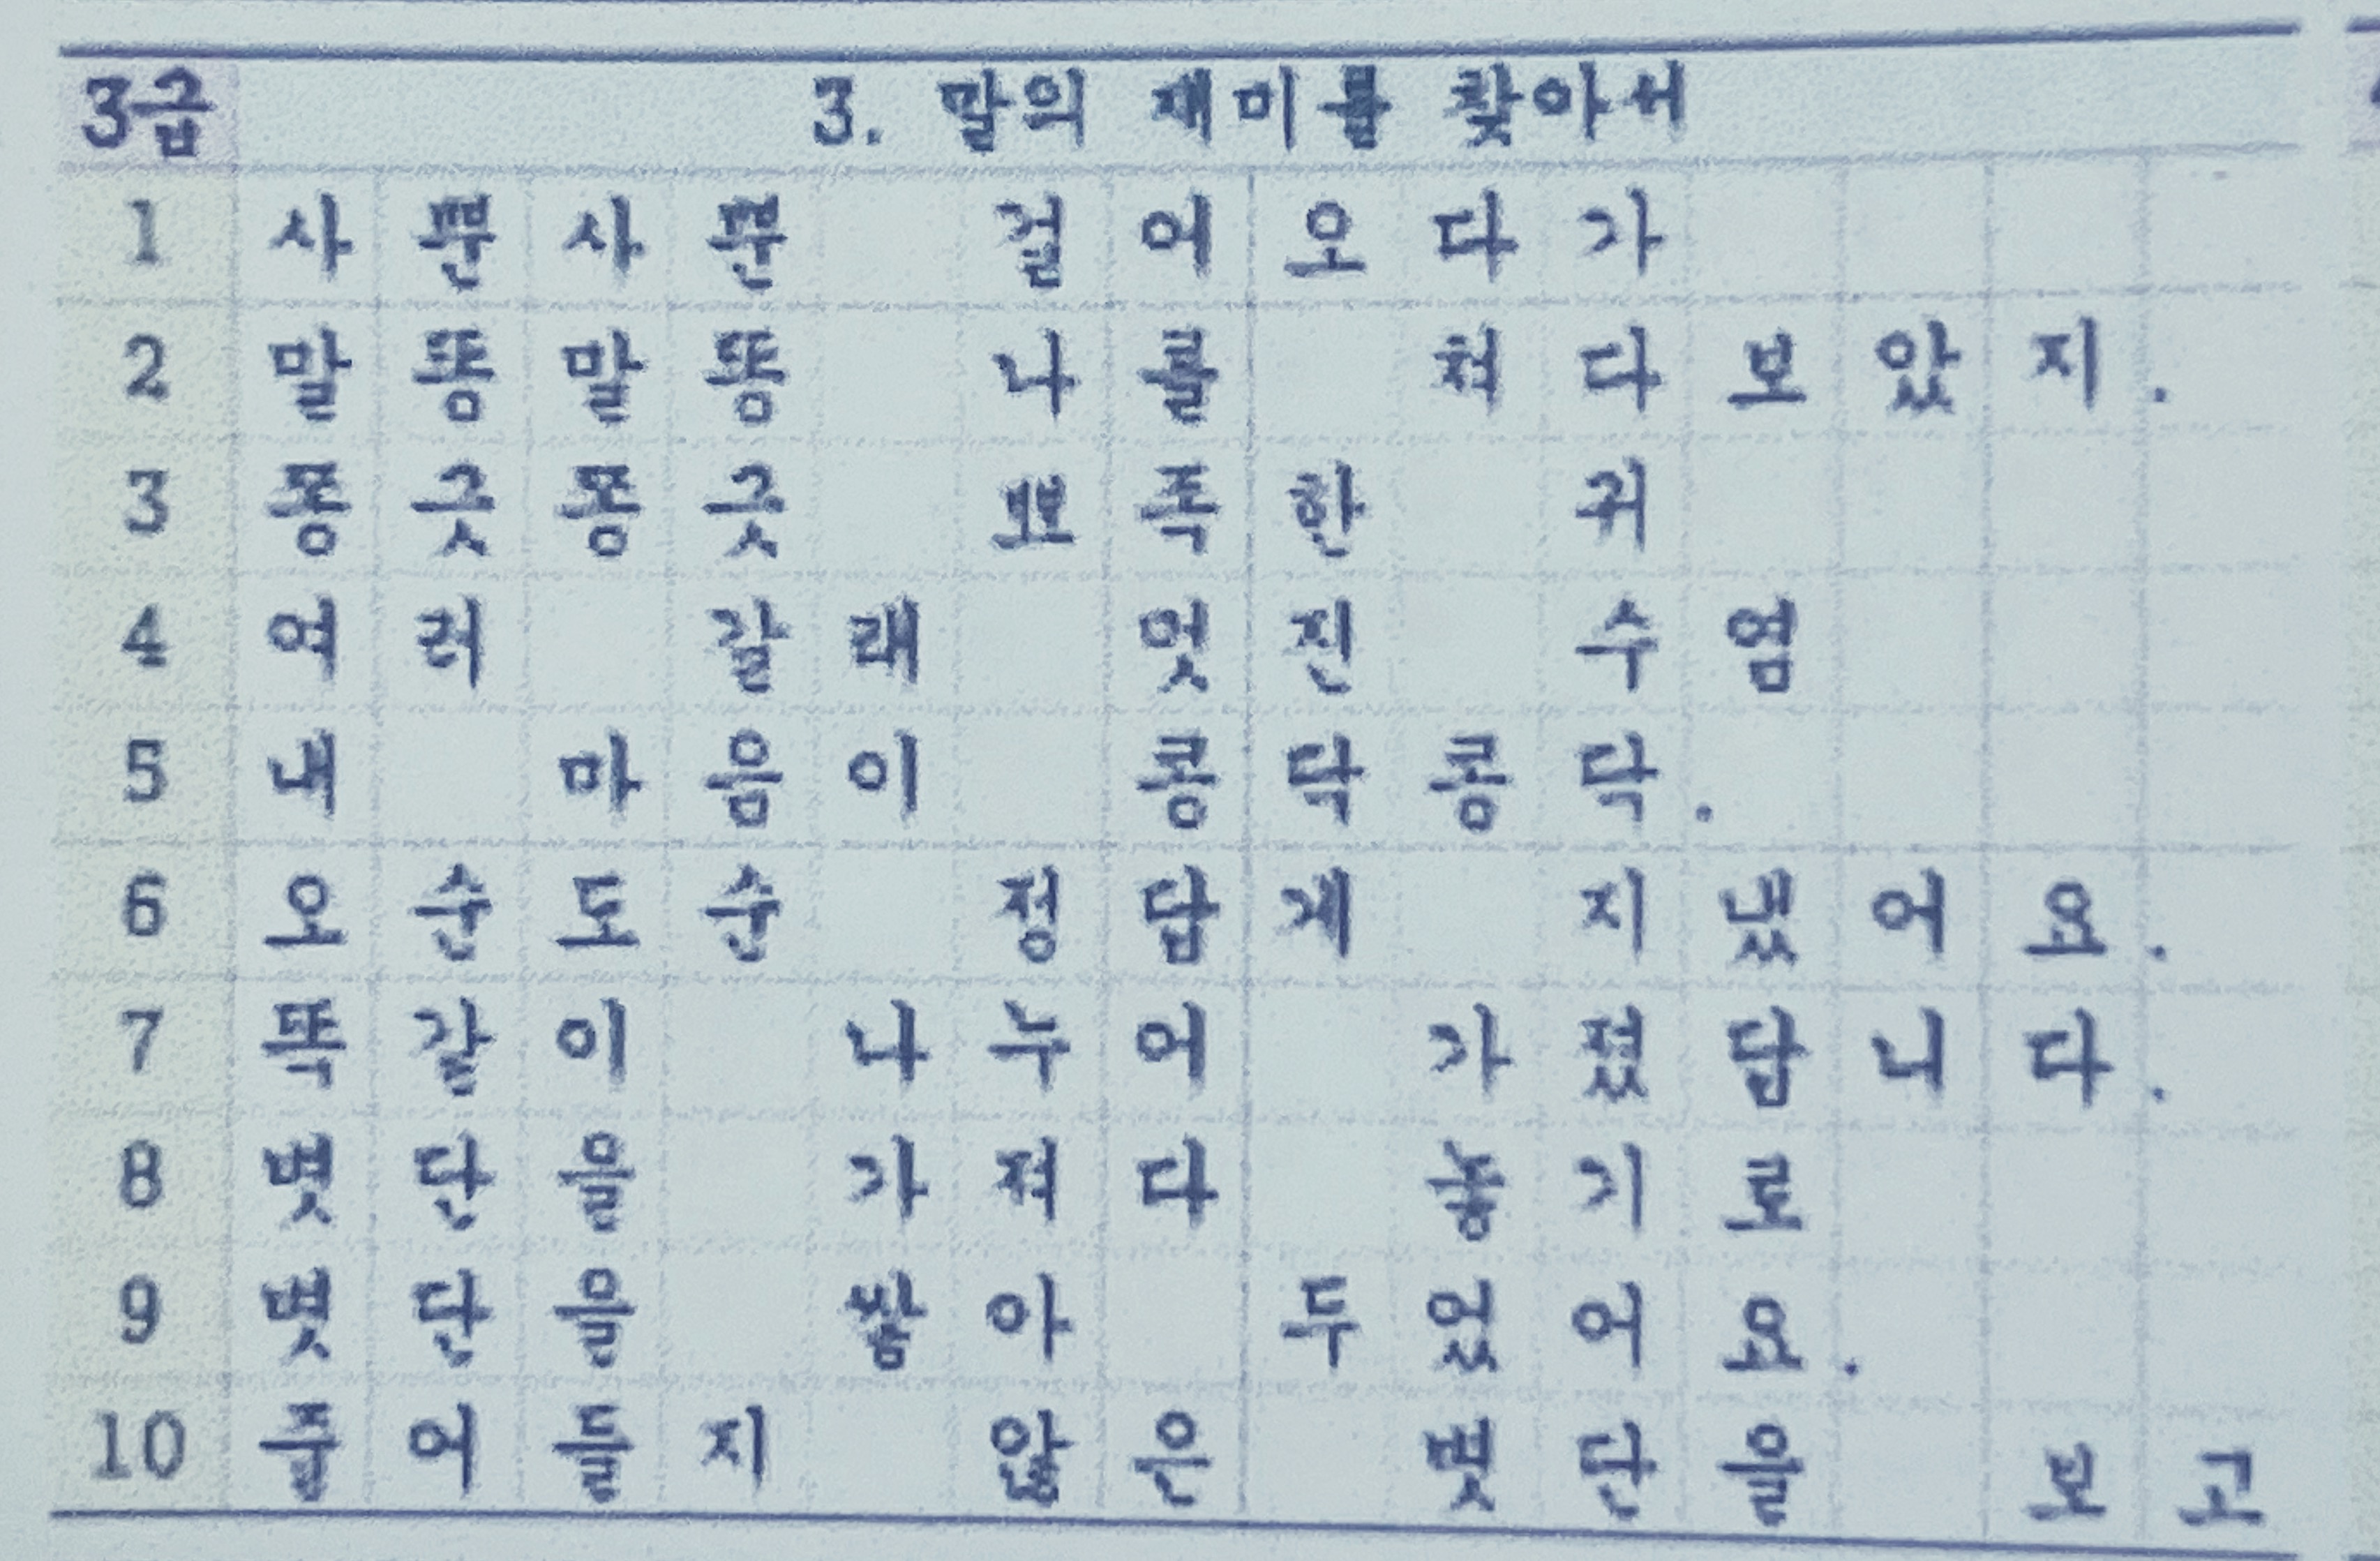 3급 3. 말의 재미를 찾아서
1 사뿐사뿐 걸어오다가
2 말똥말똥 나를 쳐다보았지.
3 쫑긋쫑긋 뾰족한 귀
4 여러 갈래 멋진 수염
5 내 마음이 콩닥콩닥.
6 오순도순 정답게 지냈어요.
7 똑같이 나누어 가졌답니다.
8 볏단을 가져다 놓기로
9 볏단을 쌓아 두었어요.
10 줄어들지 않은 볏단을 보고